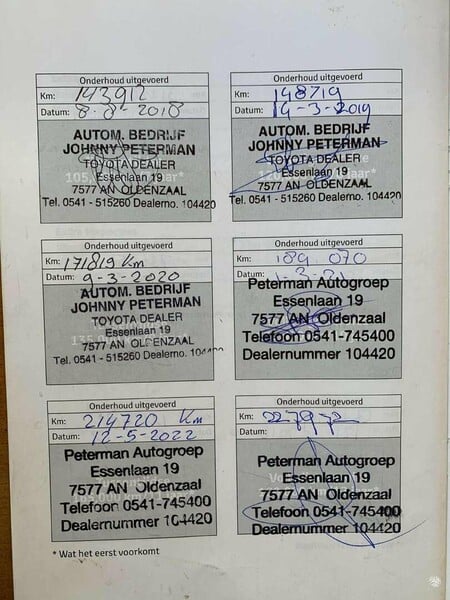 Onderhoud uitgevoerd
Km: 143912
Datum: 8-8-2018
AUTOM. BEDRIJF
JOHNNY PETERMAN
TOYOTA DEALER
Essenlaan 19
7577 AN OLDENZAAL
Tel. 0541 - 515260 Dealerno. 104420
Onderhoud uitgevoerd
Km: 148719
Datum: 14-3-2019
AUTOM. BEDRIJF
JOHNNY PETERMAN
TOYOTA DEALER
Essenlaan 19
7577 AN OLDENZAAL
Tel. 0541 - 515260 Dealerno. 104420
Onderhoud uitgevoerd
Km: 171819 Km
Datum: 9-3-2020
AUTOM. BEDRIJF
JOHNNY PETERMAN
TOYOTA DEALER
Essenlaan 19
7577 AN OLDENZAAL
Tel. 0541 - 515260 Dealerno. 104420
Onderhoud uitgevoerd
Km: 189 070
Datum: 1-3-21
Peterman Autogroep
Essenlaan 19
7577 AN Oldenzaal
Telefoon 0541-745400
Dealernummer 104420
Onderhoud uitgevoerd
Km: 214720 Km
Datum: 12-5-2022
Peterman Autogroep
Essenlaan 19
7577 AN Oldenzaal
Telefoon 0541-745400
Dealernummer 104420
Onderhoud uitgevoerd
Km: 227972
Datum:
Peterman Autogroep
Essenlaan 19
7577 AN Oldenzaal
Telefoon 0541-745400
Dealernummer 104420
* Wat het eerst voorkomt